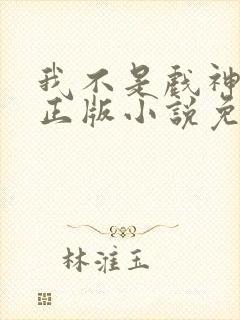 我不是戏神
正版小说免
林淮玉